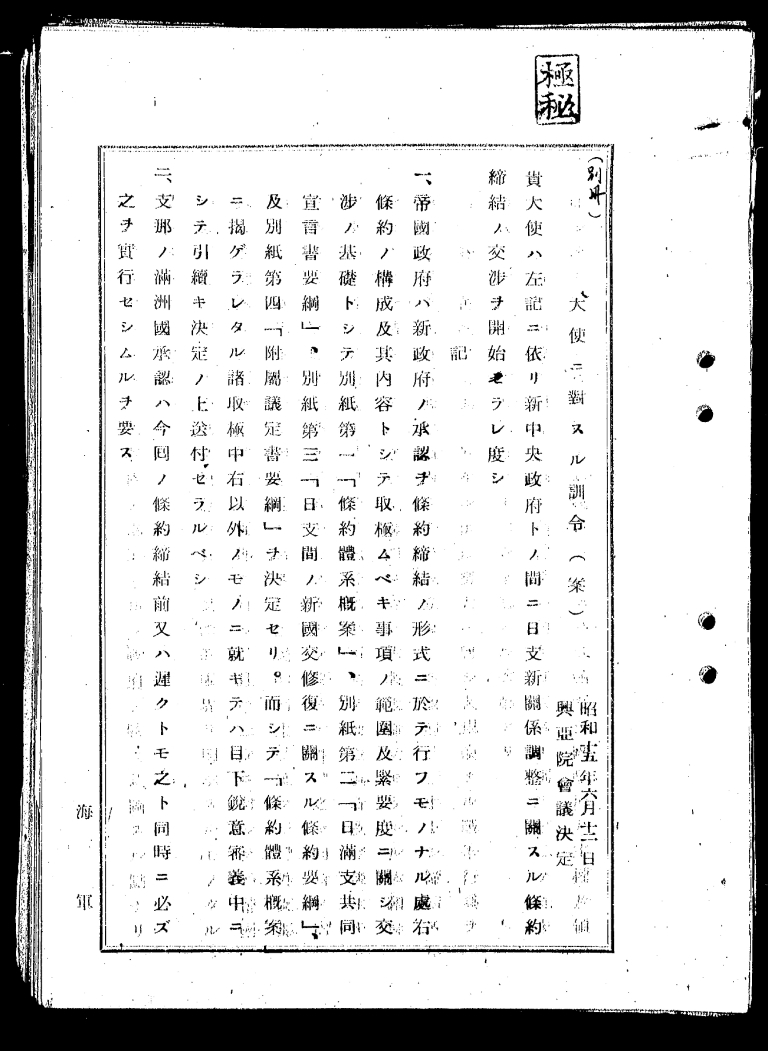 極秘
(別册)
大使ニ對スル訓令(案)
昭和十五年六月十二日
興亞院會議決定
貴大使ハ左記ニ依リ新中央政府トノ間ニ日支新關係調整ニ關スル條約
締結ノ交渉ヲ開始セラレ度シ
記
一、帝國政府ハ新政府ノ承認ヲ條約締結ノ形式ニ於テ行フモノナル處右
條約ノ構成及其內容トシテ取極ムベキ事項ノ範圍及緊要度ニ關シ交
涉ノ基礎トシテ別紙第一「條約體系概案」、別紙第二「日滿支共同
宣言書要綱」、別紙第三「日支間ノ新國交修復ニ關スル條約要綱」、
及別紙第四「附屬議定書要綱」ヲ決定セリ。而シテ「條約體系概案
ニ揭ゲラレタル諸取極中右以外ノモノニ就キテハ目下銳意審義中ニ
シテ引續キ決定ノ上送付セラルベシ
二、支那ノ滿洲國承認ハ今回ノ條約締結前又ハ遲クトモ之ト同時ニ必ズ
之ヲ實行セシムルヲ要ス
海軍